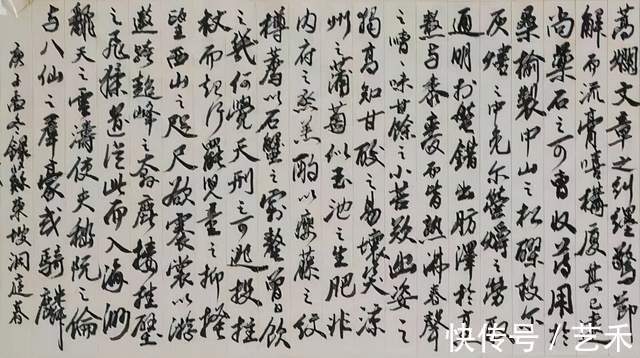 爛文章之糾纆驚節
解而流膏嗟構厦其已遠
尚藥石之可曹收薄用於
桑榆製中山之松醪救尔
灰燼之中免尔螢爝之勞取
通明於盤錯出肪澤於烹
熬与黍麥而皆熟沸舂聲
之嘈嘈味甘餘之小苦歎幽姿之
獨高知甘酸之易壞笑凉
州之蒲萄似玉池之生肥非
内府之蒸羔酌以癭藤之紋
樽薦以石蟹之霜螯曾日飲
之幾何覺天刑之可逃投拄
杖而起行罷兒童之抑搔
望西山之咫尺欲褰裳以游
遨跨超峰之奔鹿接挂壁
之飛猱遂從此而入海渺
翻天之雲濤使夫嵇阮之倫
与八仙之羣豪或騎麟
庚子冬錄蘇東坡洞庭春
快传号／艺禾